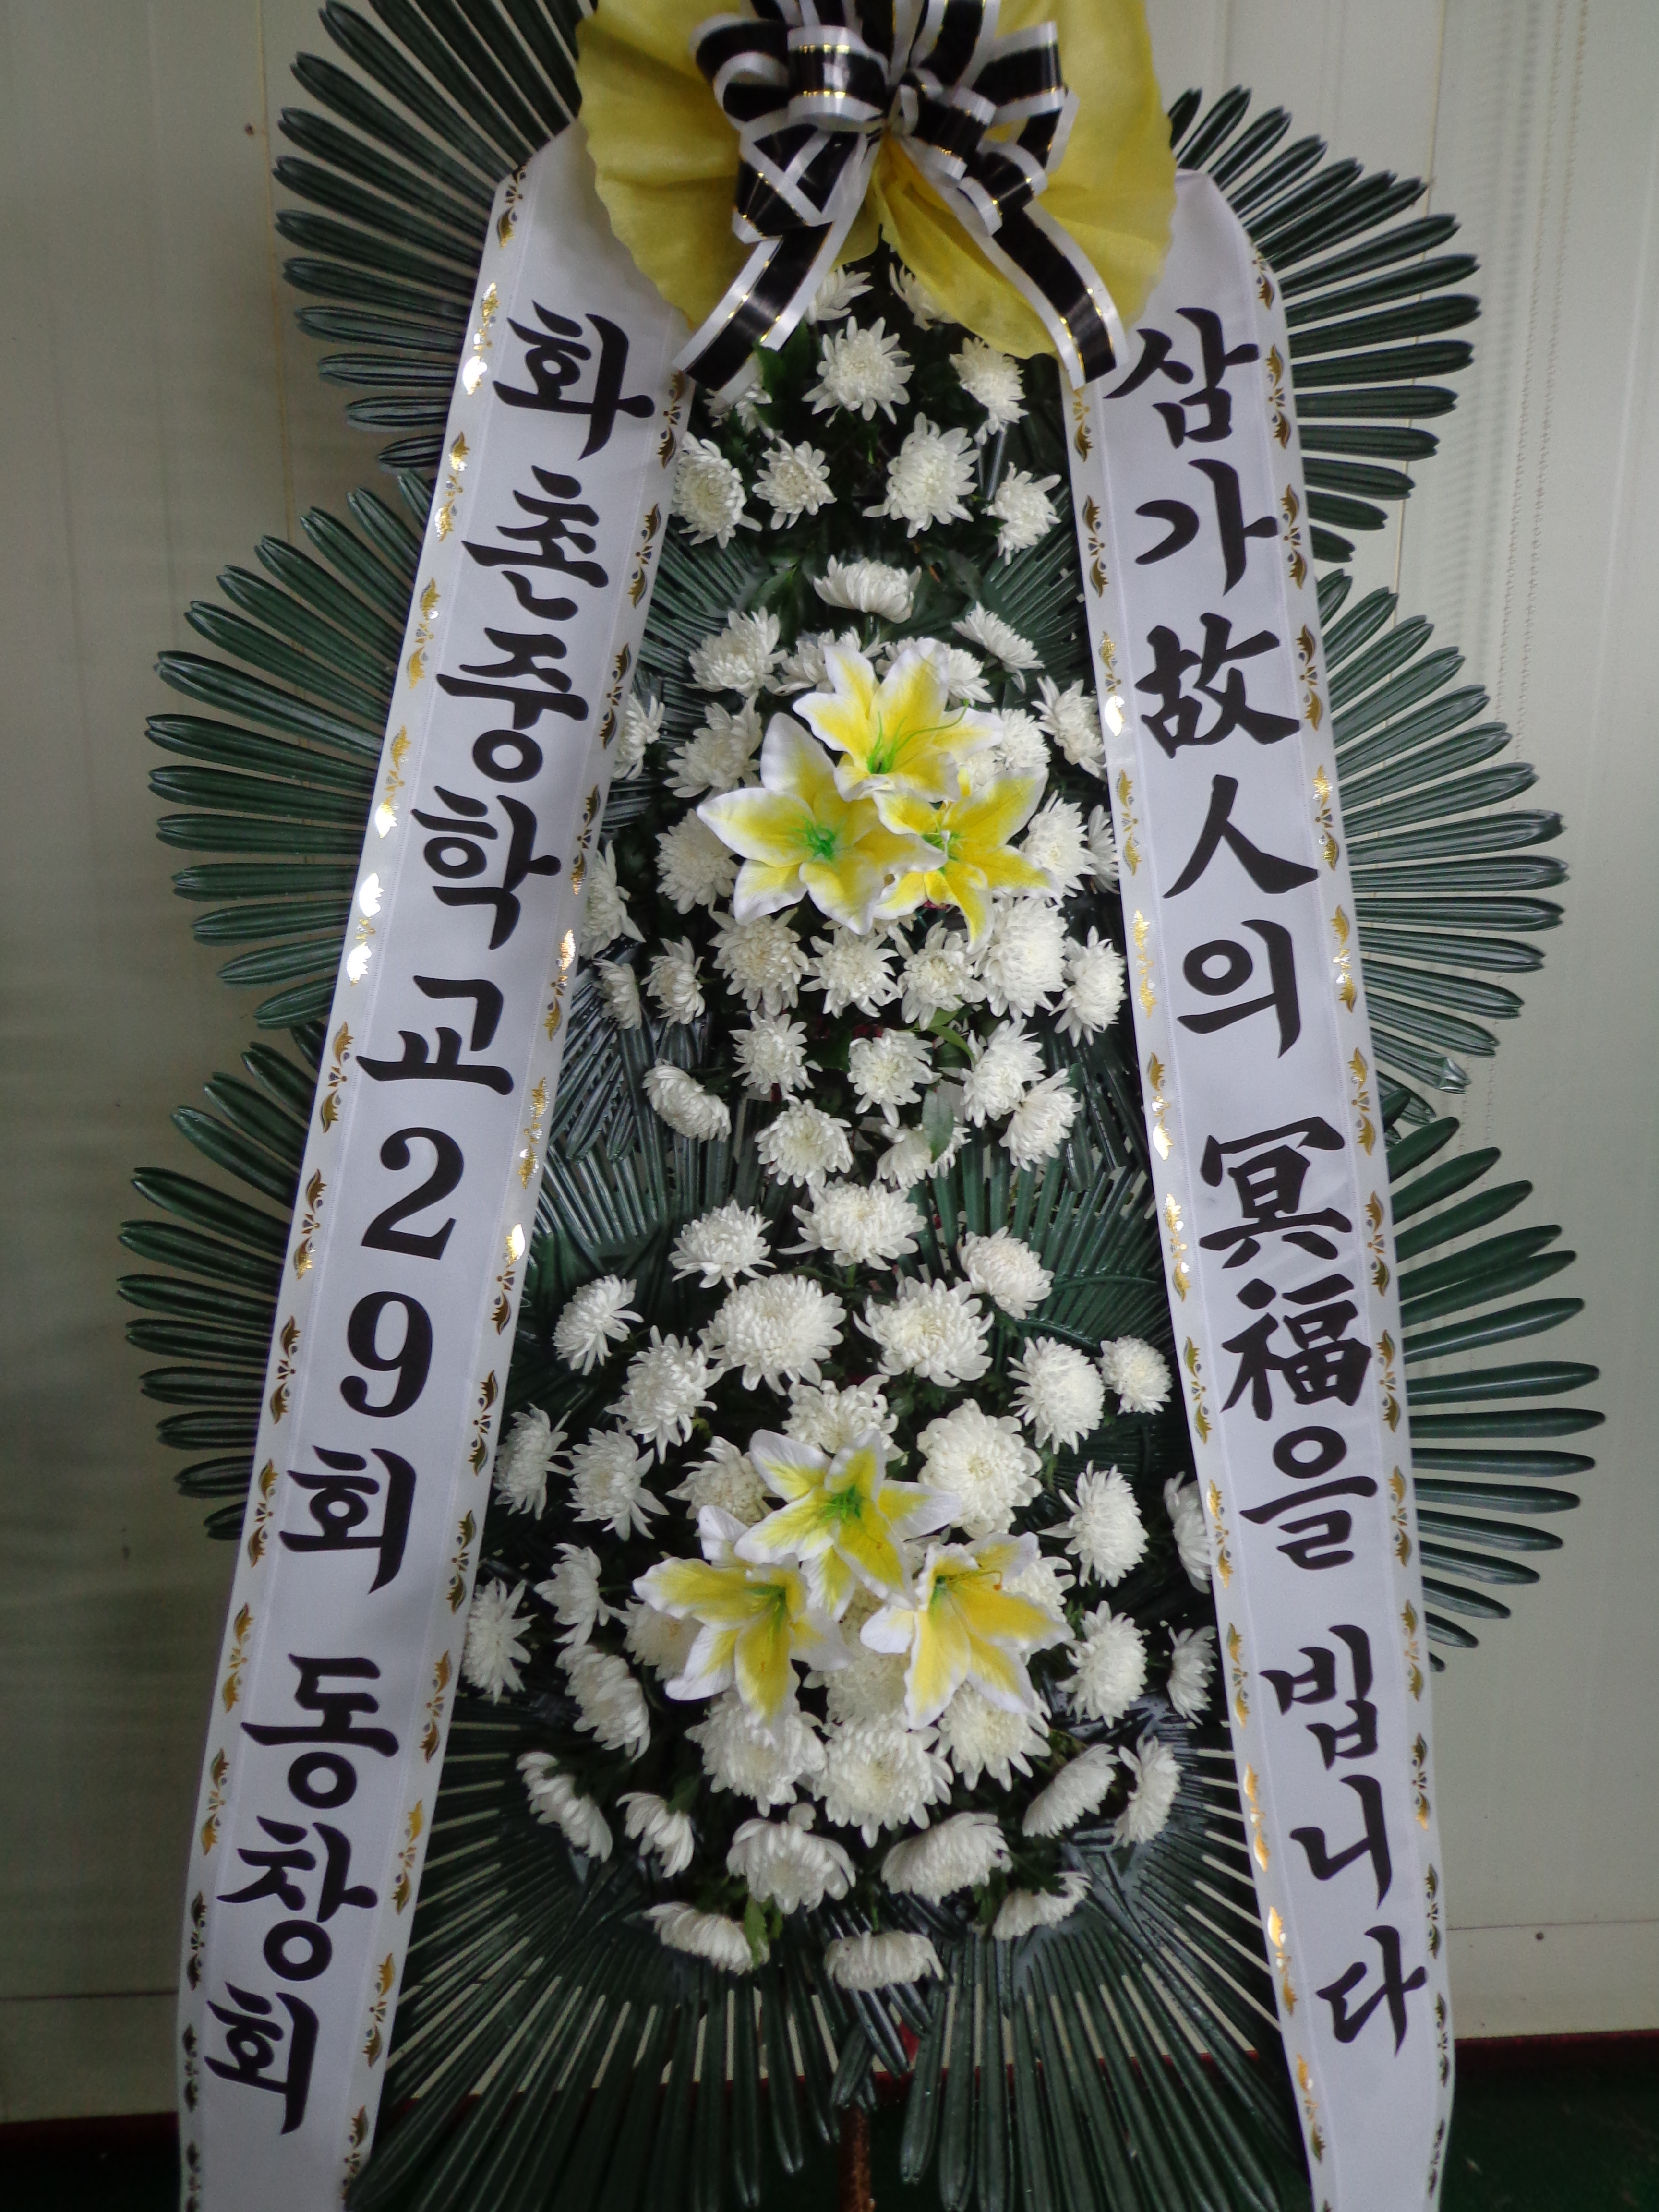 화촌중학교29회 동창회
삼가故人의 冥福을 빕니다